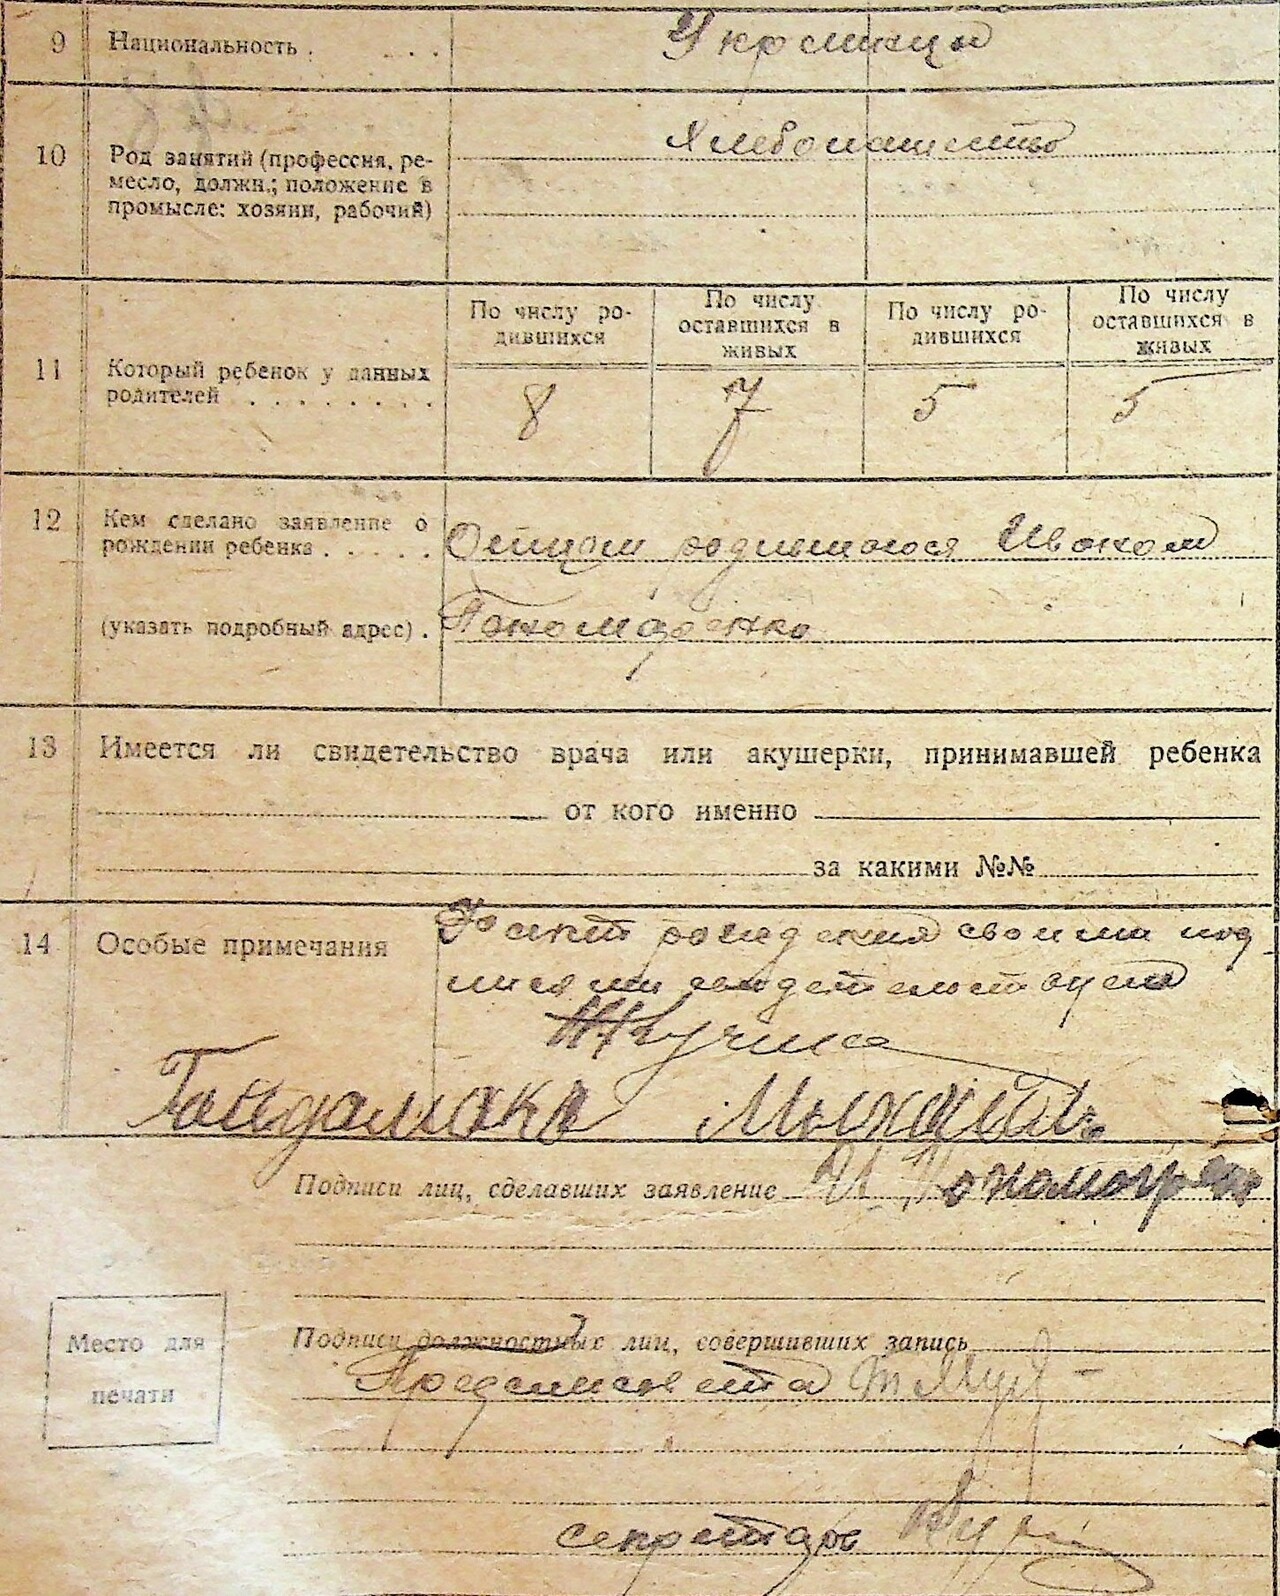 9 Национальность . . . . Украинцы
Хлебопашество
10 Род занятий (профессия, ре-
месло, должн.; положение в
промысле: хозяин, рабочий)
По числу ро-
дившихся
По числу
оставшихся в
живых
По числу ро-
дившихся
По числу
оставшихся в
живых
11 Который ребенок у данных
родителей . . . . . . . .
8 7 5 5
12 Кем сделано заявление о
рождении ребенка . . . . . Отцом родившегося Иваном
(указать подробный адрес) . Пономаренко
13 Имеется ли свидетельство врача или акушерки, принимавшей ребенка
от кого именно
за какими №№
14 Особые примечания
Факт рождения своими под
писями свидетельствуем
Гайдамака
Подписи лиц, сделавших заявление И Пономаренко
Место для
печати
Подписи должностных лиц, совершивших запись
Пред сельсовета
секретарь